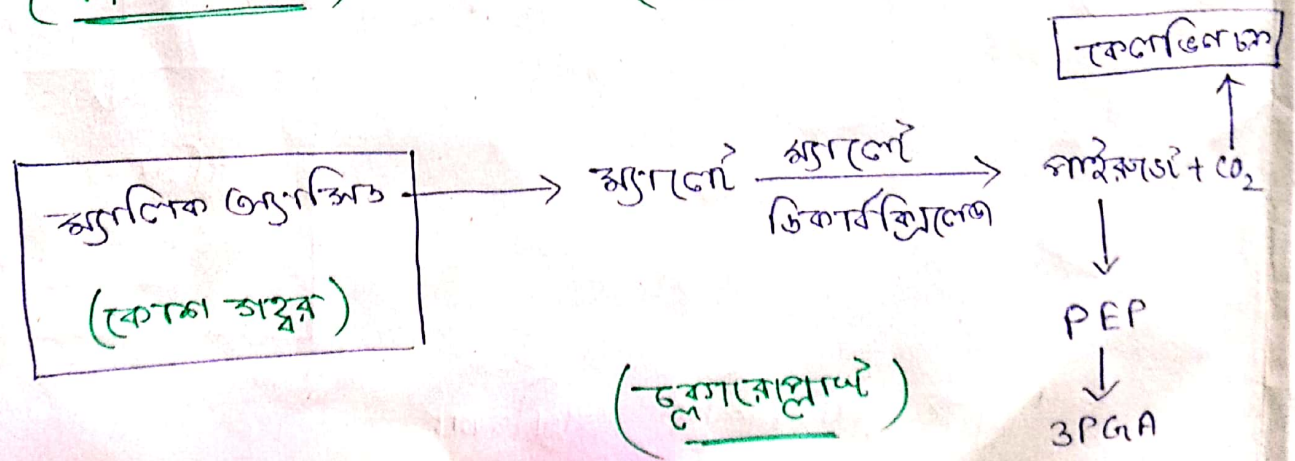 কেলভিন চক্র
ম্যালিক অ্যাসিড
(কোশ গহ্বর)
ম্যালেট
ম্যালেট
ডিকার্বক্সিলেজ
পাইরুভেট + CO₂
PEP
3PGA
(ক্লোরোপ্লাস্ট)